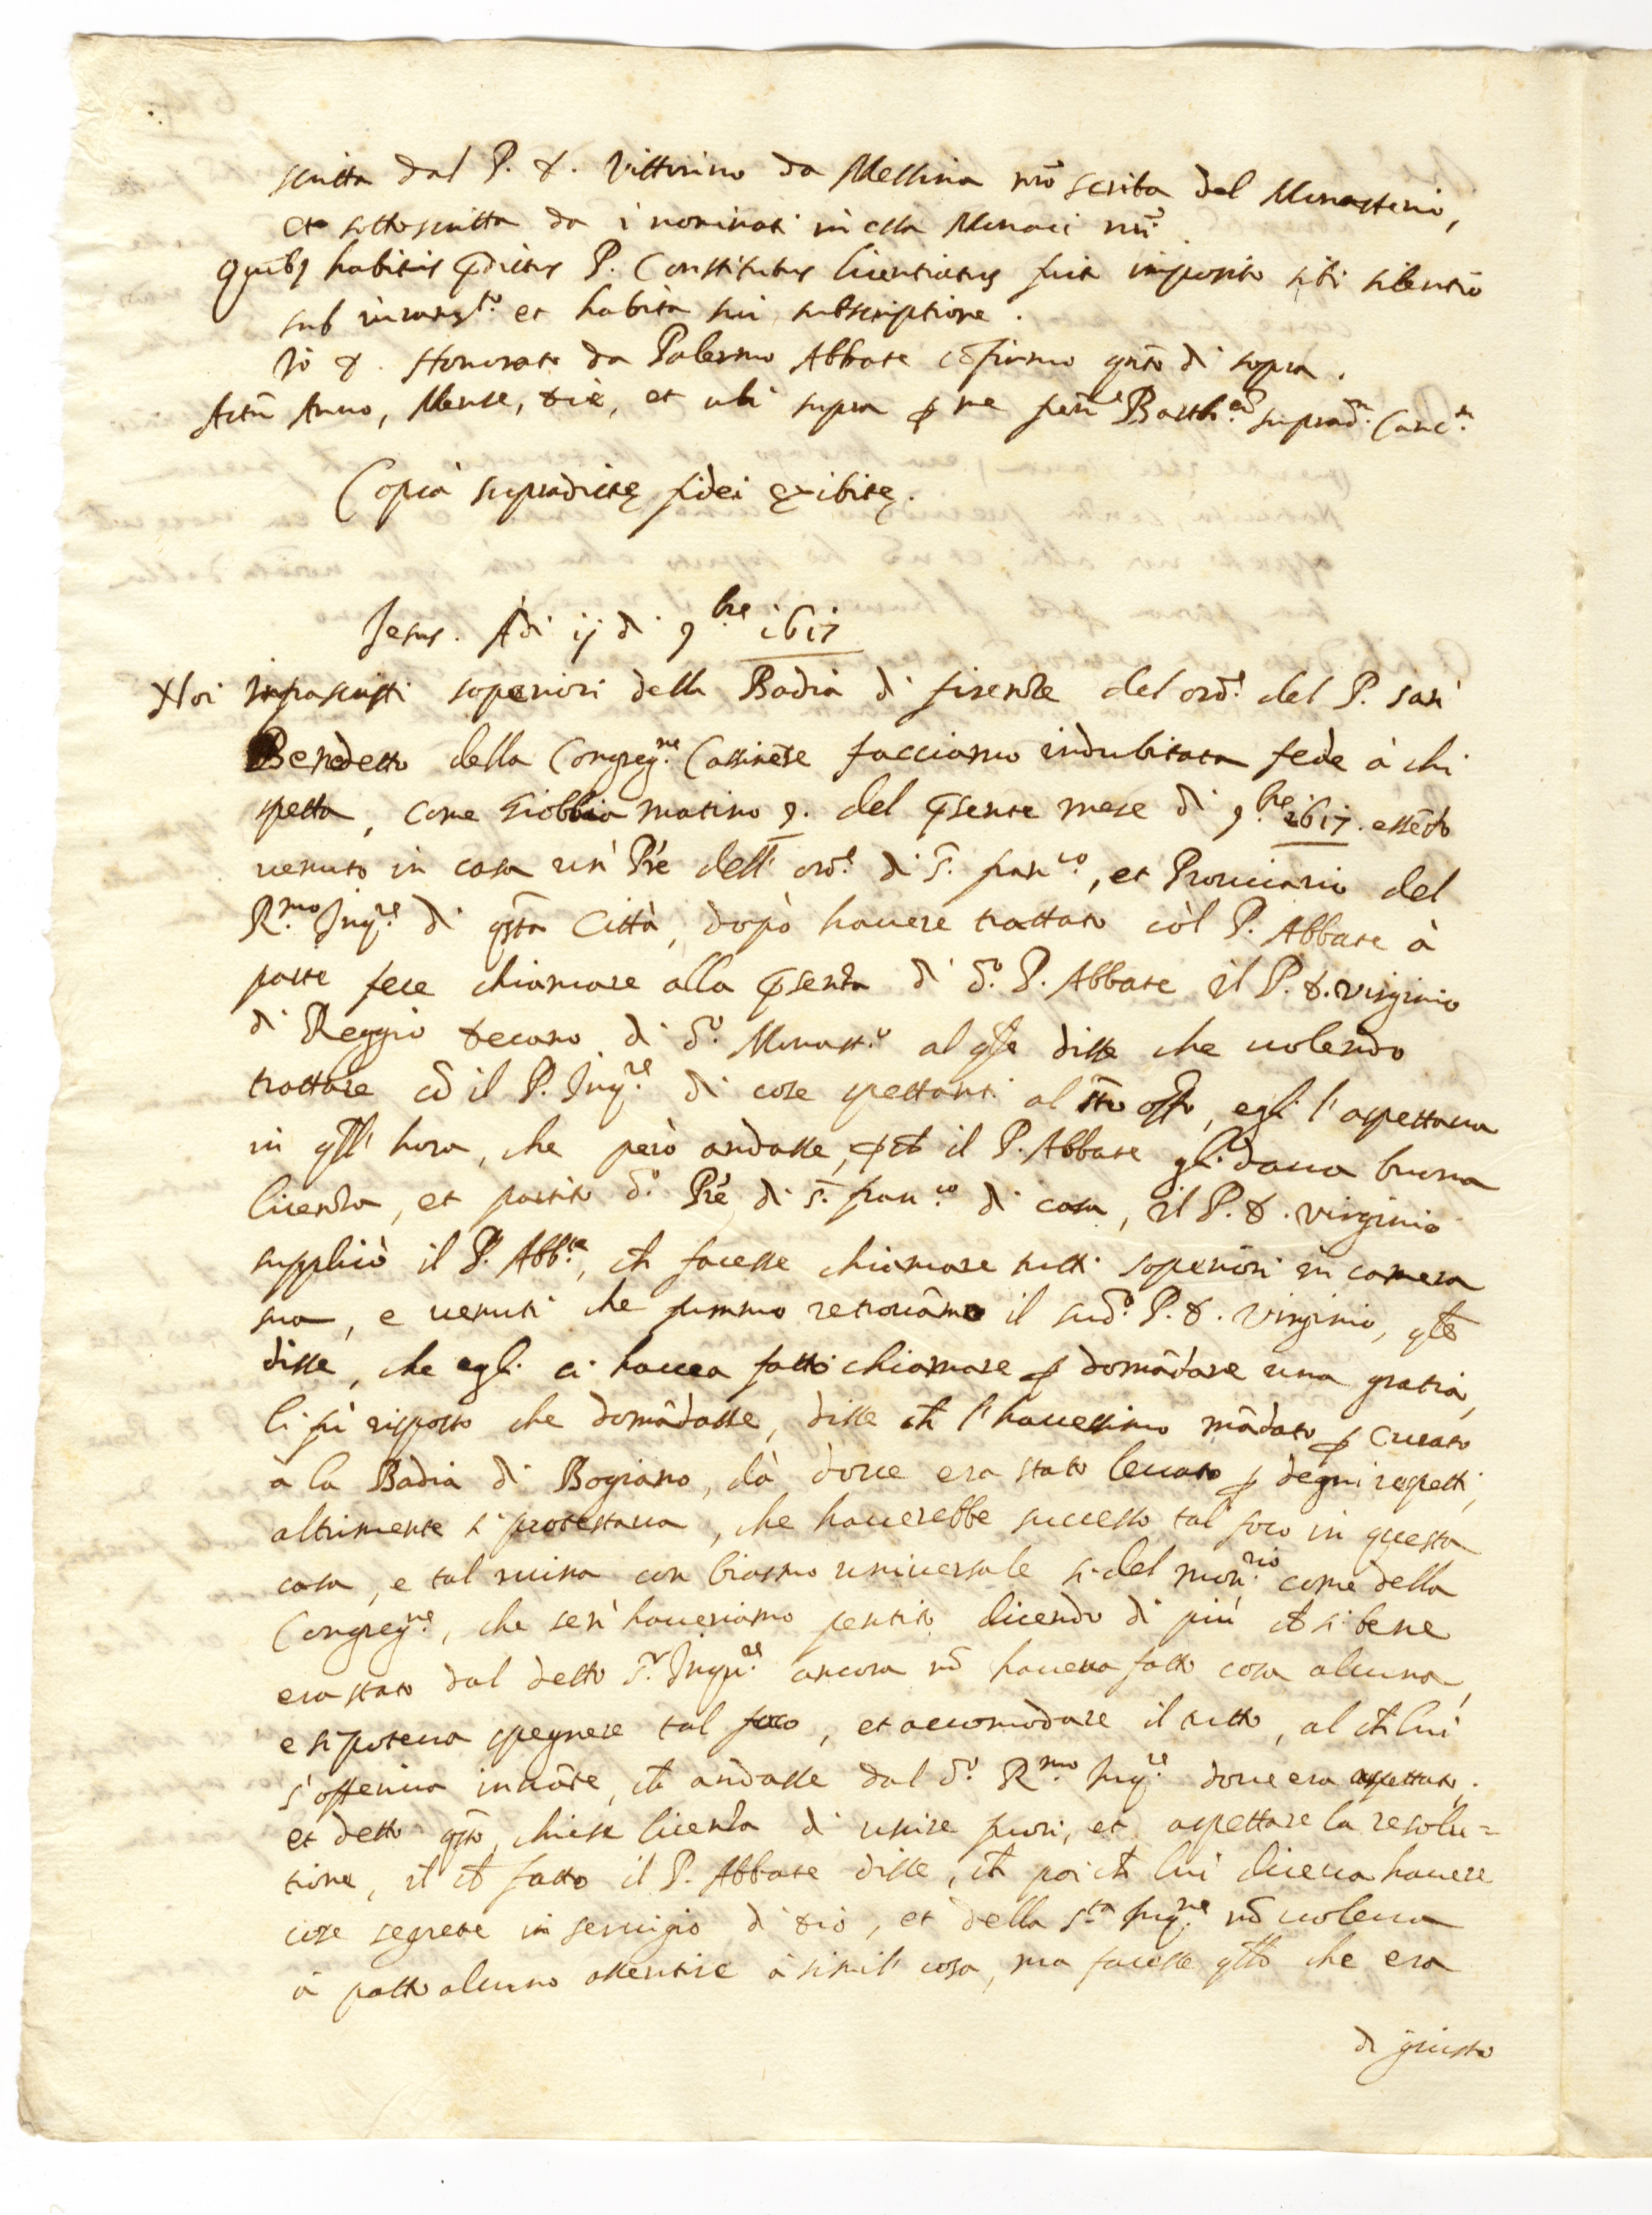 scritta dal P. D. Vittorino da Messina nrõ scriba del Monasterio,
et sottoscritta da i nominati in essa Monaci nrĩ.
Quibꝯ habitis p̃dictus P. Constitutus licentiatus fuit imposito sibi silentio
sub iuram.to et habita sui subscriptione.
Io D. Honorato da Palermo Abbate cõfirmo qnto di sopra.
Actũ Anno, Mense, Die, et ubi supra p me Barth.eũ suprad.m Canc.m
Copia supradictę fidei exibitę.
Jesus. A di ij di 9.bre 1617
Noi infrascritti soperiori della Badia di firenze del ord.e del P. san
Benedetto della Congreg.ne Cassinẽse facciamo indubitata fede à chi
spetta, come Giobbia matino 9. del p̃sente mese di 9.bre 1617. essẽdo
uenuto in casa un Prẽ dell' ord.e di S. fran.co, et Prouicario del
R.mo Inq.re di qsta Città, dopò hauere trattato còl P. Abbate à
parte fece chiamare alla p̃senza di d.o P. Abbate il P. D. virginio
di Reggio Decano di d.o Monast.o al qle disse che uolendo
trattare cõ il P. Inq.re di cose spettanti al sto offo, egli l'aspettaua
in qll' hora, che però andasse, p ch il P. Abbate gli daua buona
licenza, et partito d.o Prẽ di S. fran.co di casa, il P. D. virginio
supplicò il P. Abb.te, ch facesse chiamare tutti soperiori in camera
sua, e uenuti che fummo retrouãmo il sud.o P. D. Virginio, qle
disse, che egli ci hauea fatti chiamare p domãdare una gratia,
li fù risposto che domãdasse, disse ch l'hauessimo mãdato p Curato
à la Badia di Bogiano, dà doue era stato leuato p degni respetti,
altrimente si protestaua, che hauerebbe successo tal foco in questa
casa, e tal ruina con biasmo uniuersale si del mon.rio come della
Congreg.ne, che sen' haueriamo sentito dicendo di più ch si bene
era stato dal detto P. Inqu.re ancora nõ haueua fatto cosa alcuna,
e si poteua spegnere tal foco, et accomodare il tutto, al ch lui
s'offeriua innãte, ch andasse dal d.o R.mo Inq.re doue era aspettato.
et detto qsto, chiese licenza di uscire fuori, et aspettare la resolu=
tione, il ch fatto il P. Abbate disse, ch poi ch lui diceua hauere
cose segrete in seruigio di Dio, et della S.ta Inq.ne nõ uoleua
à patto alcuno assentire à simil' cosa, ma facesse qllo che era
di giusto